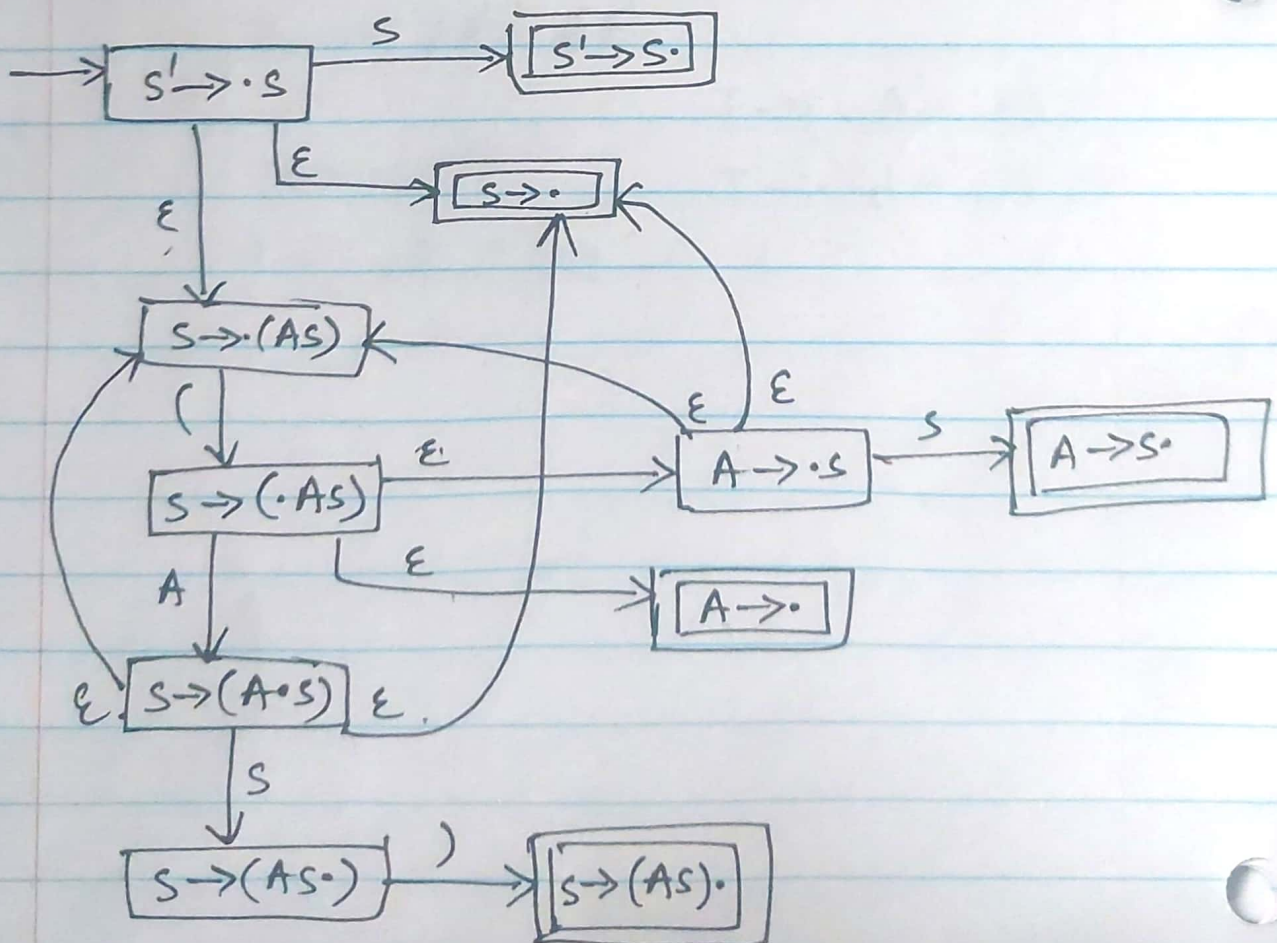 S
S'→·S
S'→S·
ε
S→·
ε
S→·(AS)
(
ε
ε
S
A→·S
A→S·
ε
S→(·AS)
ε
A
A→·
ε
S→(A·S)
ε
S
)
S→(AS·)
S→(AS)·